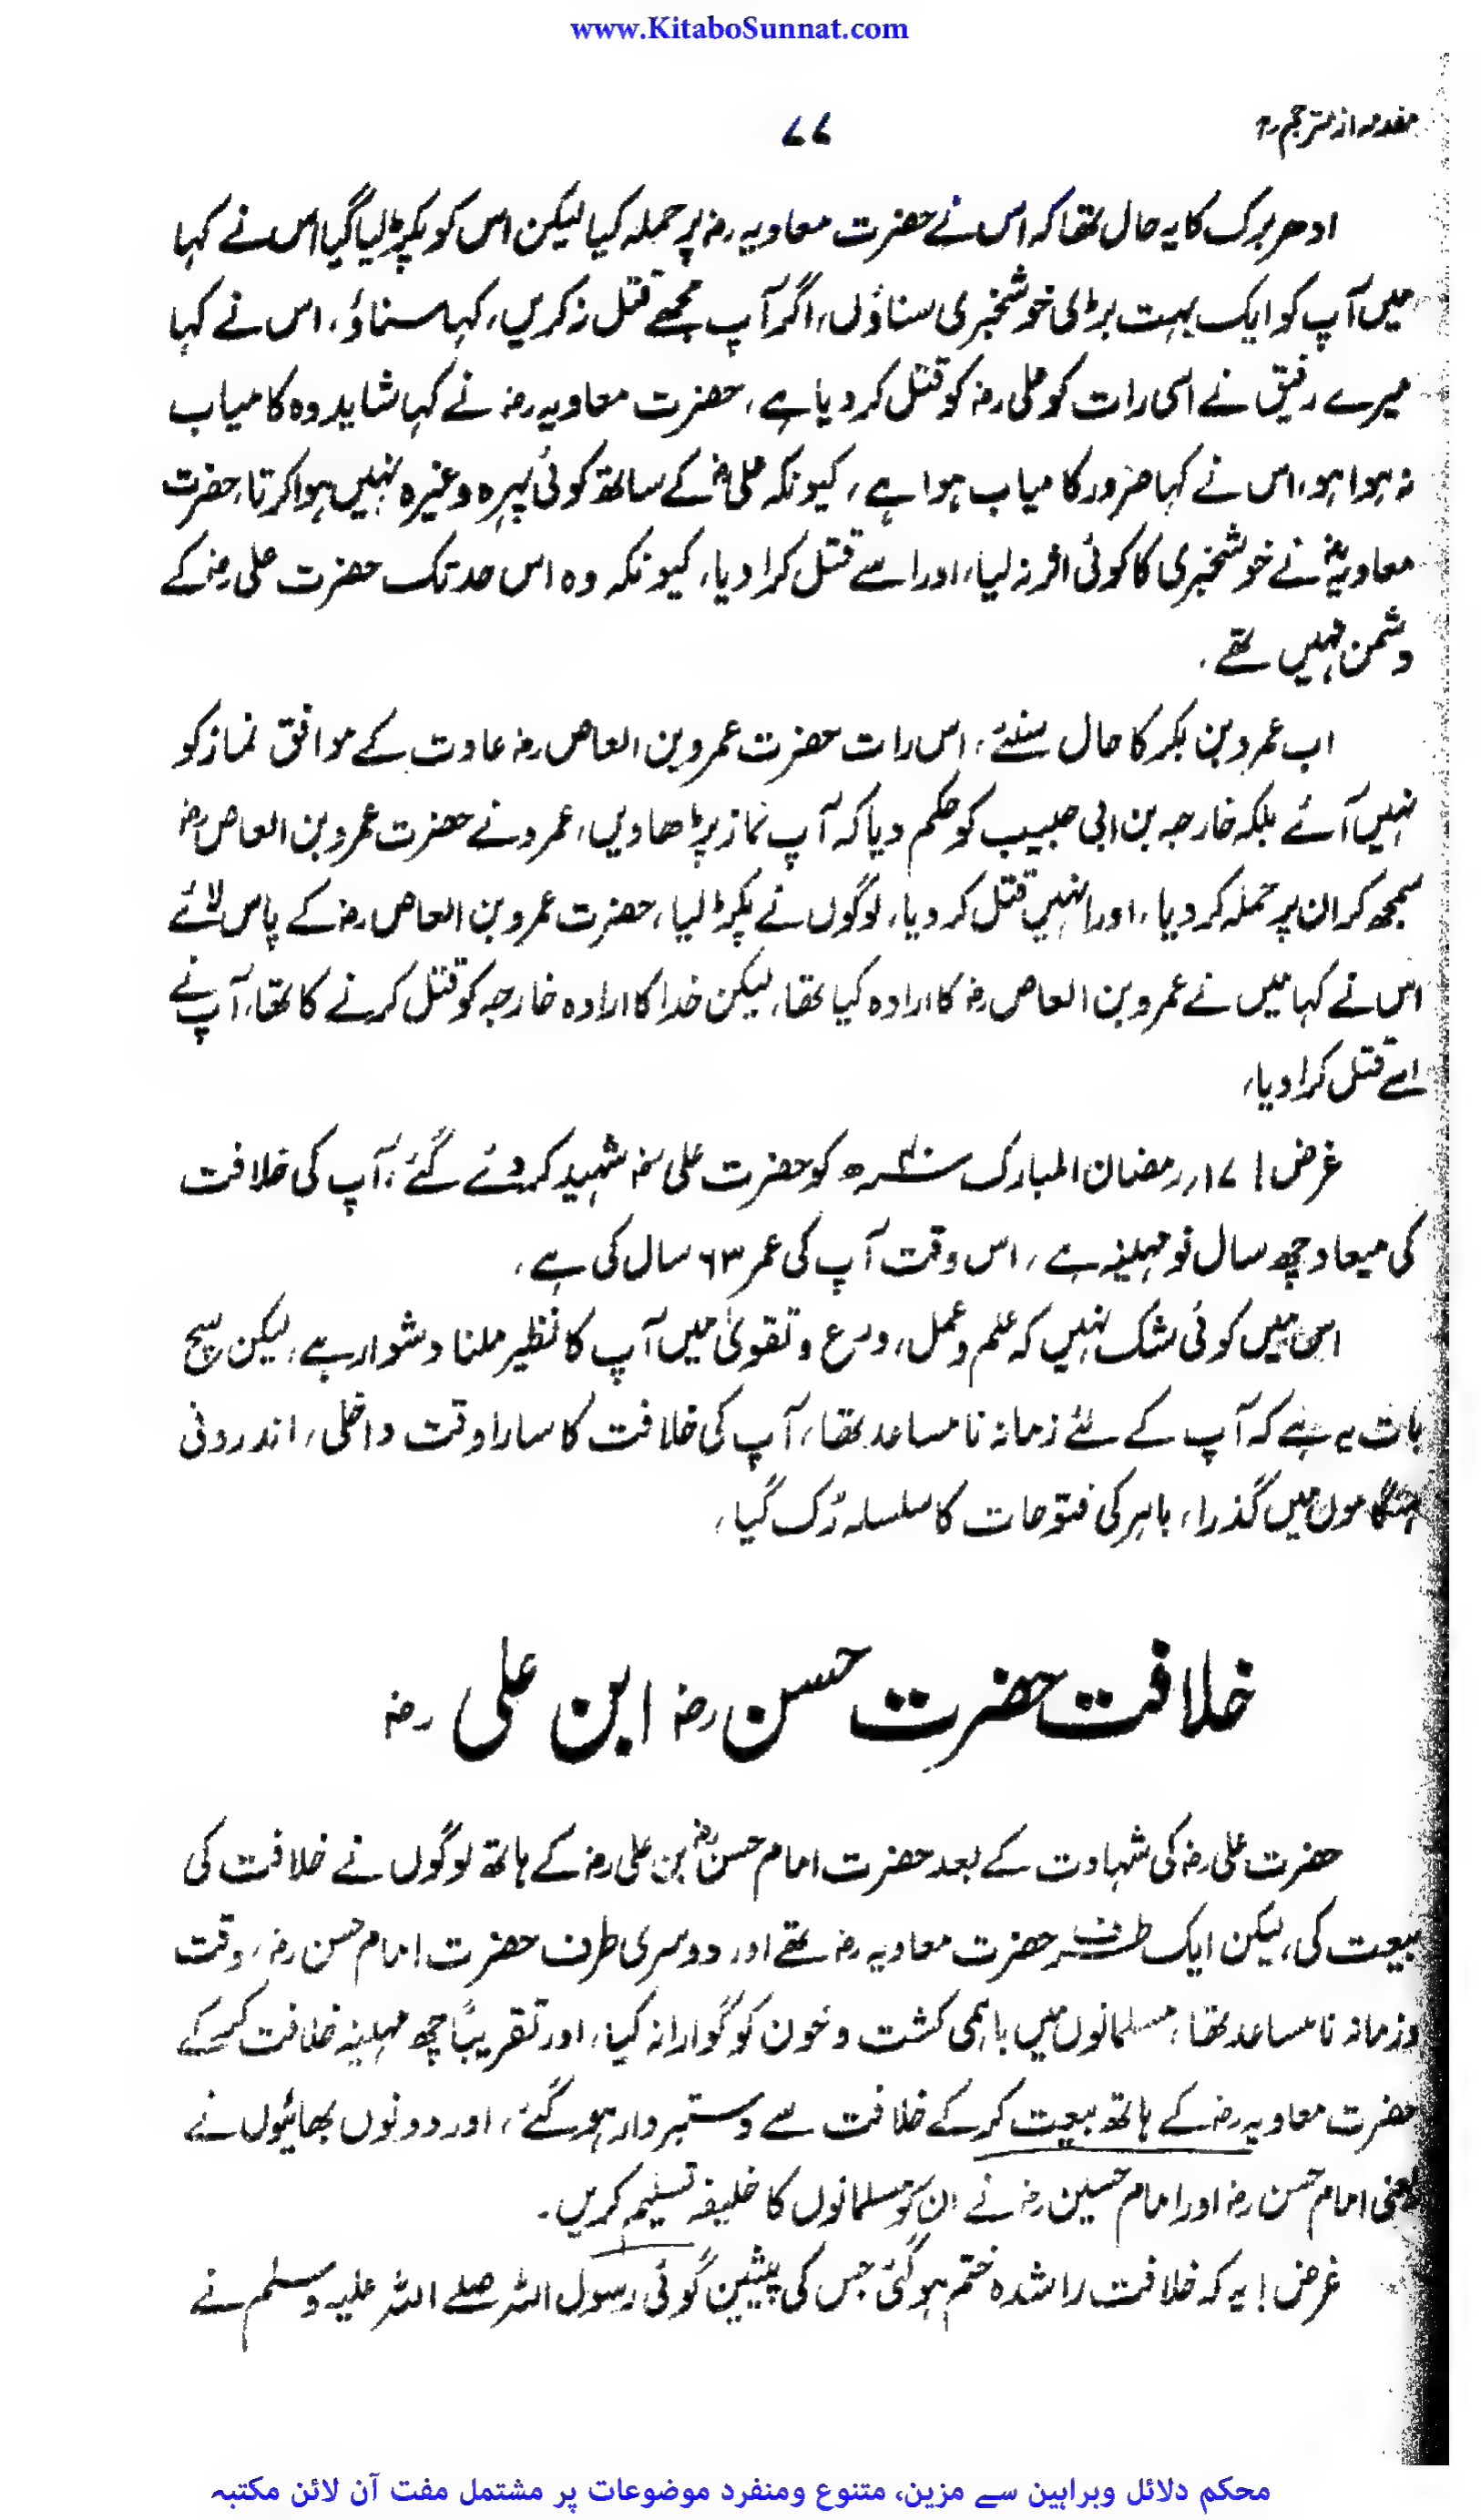 www.KitaboSunnat.com
مقدمہ از مترجم رہ
۷۷
ادھر برک کا یہ حال تھا کہ اس نے حضرت معاویہ رضہ پر حملہ کیا لیکن اس کو پکڑ لیا گیا اس نے کہا
میں آپ کو ایک بہت بڑی خوشخبری سناؤں، اگر آپ مجھے قتل نہ کریں، کہا سناؤ، اس نے کہا
میرے رفیق نے اسی رات کو علی رضہ کو قتل کر دیا ہے، حضرت معاویہ رضہ نے کہا شاید وہ کامیاب
نہ ہوا ہو، اس نے کہا ضرور کامیاب ہوا ہے، کیونکہ علیؓ کے ساتھ کوئی پہرہ وغیرہ نہیں ہوا کرتا، حضرت
معاویہؓ نے خوشخبری کا کوئی اثر نہ لیا، اور اسے قتل کرا دیا، کیونکہ وہ اس حد تک حضرت علی رضہ کے
دشمن نہیں تھے،
اب عمرو بن بکر کا حال سنئے، اس رات حضرت عمرو بن العاص رضہ عادت کے موافق نماز کو
نہیں آئے بلکہ خارجہ بن ابی حبیب کو حکم دیا کہ آپ نماز پڑھاویں، عمرو نے حضرت عمرو بن العاص رضہ
سمجھ کر ان پر حملہ کر دیا، اور انہیں قتل کر دیا، لوگوں نے پکڑ لیا، حضرت عمرو بن العاص رضہ کے پاس لائے
اس نے کہا میں نے عمرو بن العاص رضہ کا ارادہ کیا تھا، لیکن خدا کا ارادہ خارجہ کو قتل کرنے کا تھا، آپ نے
اسے قتل کرا دیا،
غرض! ۱۷؍ رمضان المبارک ۴۰ھ کو حضرت علی رضہ شہید کر دئے گئے، آپ کی خلافت
کی میعاد چھ سال نو مہینہ ہے، اس وقت آپ کی عمر ۶۳ سال کی ہے،
اس میں کوئی شک نہیں کہ علم و عمل، ورع و تقویٰ میں آپ کا نظیر ملنا دشوار ہے، لیکن سچ
بات یہ ہے کہ آپ کے لئے زمانہ نا مساعد تھا، آپ کی خلافت کا سارا وقت داخلی، اندرونی
ہنگاموں میں گذرا، باہر کی فتوحات کا سلسلہ رُک گیا،
خلافت حضرت حسن رضہ ابن علی رضہ
حضرت علی رضہ کی شہادت کے بعد حضرت امام حسنؓ بن علی رضہ کے ہاتھ لوگوں نے خلافت کی
بیعت کی، لیکن ایک طرف حضرت معاویہ رضہ تھے اور دوسری طرف حضرت امام حسن رضہ، وقت
و زمانہ نا مساعد تھا، مسلمانوں میں باہمی کشت و خون کو گوارا نہ کیا، اور تقریباً چھ مہینہ خلافت کر کے
حضرت معاویہ رضہ کے ہاتھ بیعت کر کے خلافت سے دستبردار ہو گئے، اور دونوں بھائیوں نے
یعنی امام حسن رضہ اور امام حسین رضہ نے ان کو مسلمانوں کا خلیفہ تسلیم کریں۔
غرض! یہ کہ خلافت راشدہ ختم ہو گئی جس کی پیشین گوئی رسول اللہ صلے اللہ علیہ وسلم نے
محکم دلائل وبراہین سے مزین، متنوع ومنفرد موضوعات پر مشتمل مفت آن لائن مکتبہ